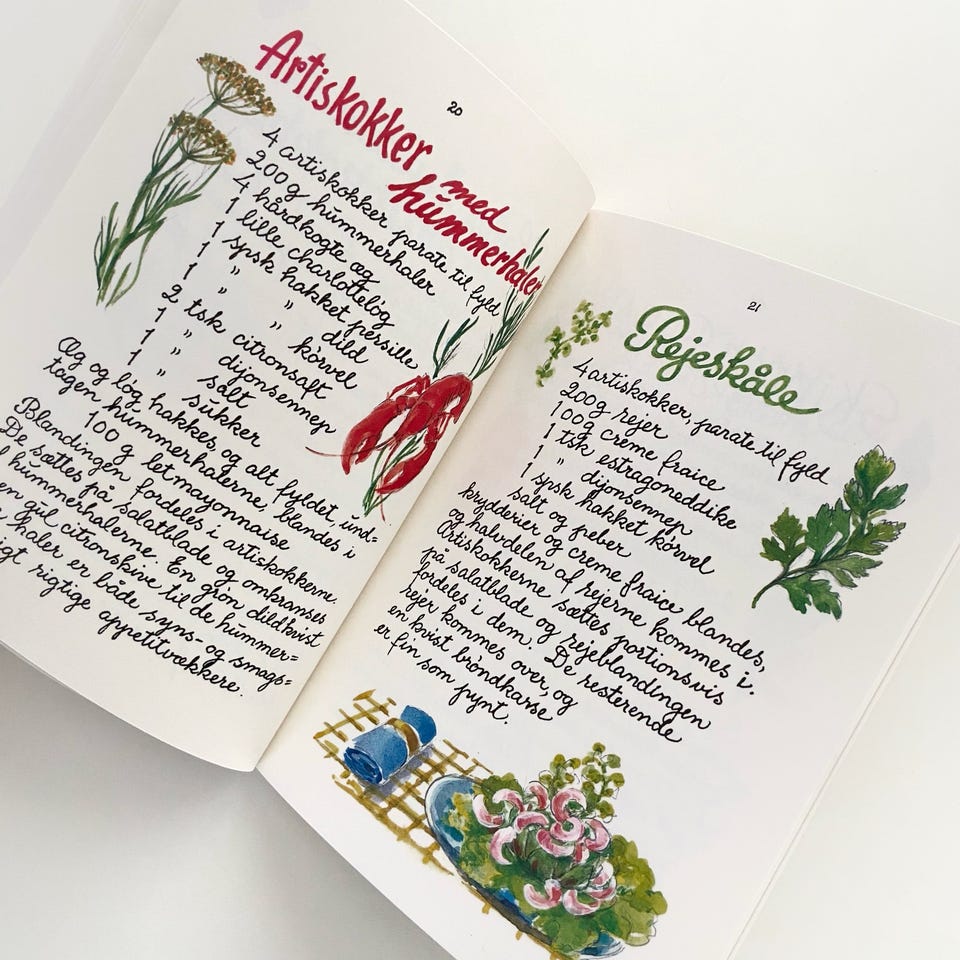 20
Artiskokker
med
hummerhaler
4 artiskokker parate til fyld
200 g hummerhaler
4 hårdkogte æg
1 lille charlotteløg
1 spsk hakket persille
1 " " dild
1 " " kørvel
2 tsk citronsaft
1 " dijonsennep
1 " salt
1 " sukker
Æg og løg hakkes, og alt fyldet, und-
tagen hummerhalerne, blandes i
100 g let mayonnaise
Blandingen fordeles i artiskokkerne.
De sættes på salatblade og omkranses
hummerhalerne. En grøn dildkvist
en gul citronskive til de hummer=
haler er både syns- og smags=
igt rigtige
appetitvækkere.
21
Rejeskåle
4 artiskokker, parate til fyld
200 g rejer
100 g creme fraice
1 tsk estragoneddike
1 " dijonsennep
1 spsk hakket kørvel
salt og peber
krydderier og creme fraice blandes,
og halvdelen af rejerne kommes i.
Artiskokkerne sættes portionsvis
på salatblade og rejeblandingen
fordeles i dem. De resterende
rejer kommes over, og
en kvist brøndkarse
er fin som pynt.